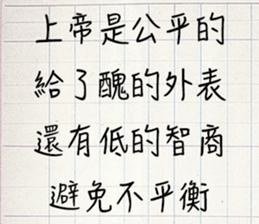 上帝是公平的
給了醜的外表
還有低的智商
避免不平衡